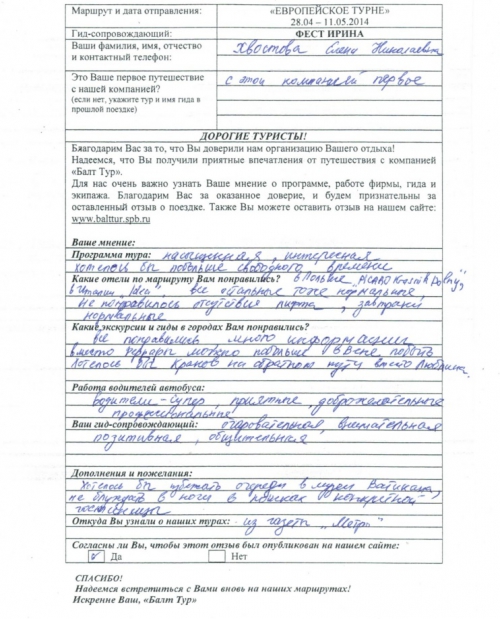 Маршрут и дата отправления: «ЕВРОПЕЙСКОЕ ТУРНЕ»
28.04 – 11.05.2014
Гид-сопровождающий: ФЕСТ ИРИНА
Ваши фамилия, имя, отчество Хвостова Елена Николаевна
и контактный телефон:
Это Ваше первое путешествие с этой компанией первое
с нашей компанией?
(если нет, укажите тур и имя гида в
прошлой поездке)
ДОРОГИЕ ТУРИСТЫ!
Благодарим Вас за то, что Вы доверили нам организацию Вашего отдыха!
Надеемся, что Вы получили приятные впечатления от путешествия с компанией
«Балт Тур».
Для нас очень важно узнать Ваше мнение о программе, работе фирмы, гида и
экипажа. Благодарим Вас за оказанное доверие, и будем признательны за
оставленный отзыв о поездке. Также Вы можете оставить отзыв на нашем сайте:
www.balttur.spb.ru
Ваше мнение:
Программа тура: насыщенная, интересная
хотелось бы побольше свободного времени
Какие отели по маршруту Вам понравились? в Польше,
в Италии все остальные тоже нормальные,
не понравилось отсутствие лифта, завтраки
нормальные
Какие экскурсии и гиды в городах Вам понравились?
все понравились много информации
вместо Феррары можно побольше в Вене побыть
Хотелось бы Краков на обратном пути вместо Люблина
Работа водителей автобуса:
водители - супер, приятные, доброжелательные
профессиональные
Ваш гид-сопровождающий: очаровательная, внимательная
позитивная, общительная
Дополнения и пожелания:
Хотелось бы избежать очереди в музеи Ватикана,
не блуждать в ночи в поисках конкретной
гостиницы
Откуда Вы узнали о наших турах: из газеты „Метро"
Согласны ли Вы, чтобы этот отзыв был опубликован на нашем сайте:
✓ Да Нет
СПАСИБО!
Надеемся встретиться с Вами вновь на наших маршрутах!
Искренне Ваш, «Балт Тур»